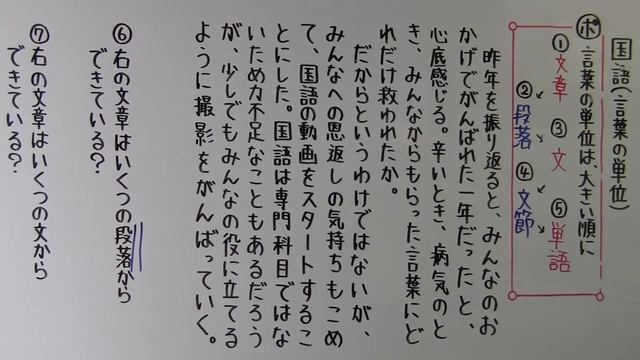 国語(言葉の単位)
ポ 言葉の単位は、大きい順に
①文章
②段落
③文
④文節
⑤単語
昨年を振り返ると、みんなのお
かげでがんばれた一年だったと、
心底感じる。辛いとき、病気のと
き、みんなからもらった言葉にど
れだけ救われたか。
だからというわけではないが、
みんなへの恩返しの気持ちもこめ
て、国語の動画をスタートするこ
とにした。国語は専門科目ではな
いため力不足なこともあるだろう
が、少しでもみんなの役に立てる
ように撮影をがんばっていく。
⑥右の文章はいくつの段落から
できている?
⑦右の文章はいくつの文から
できている?